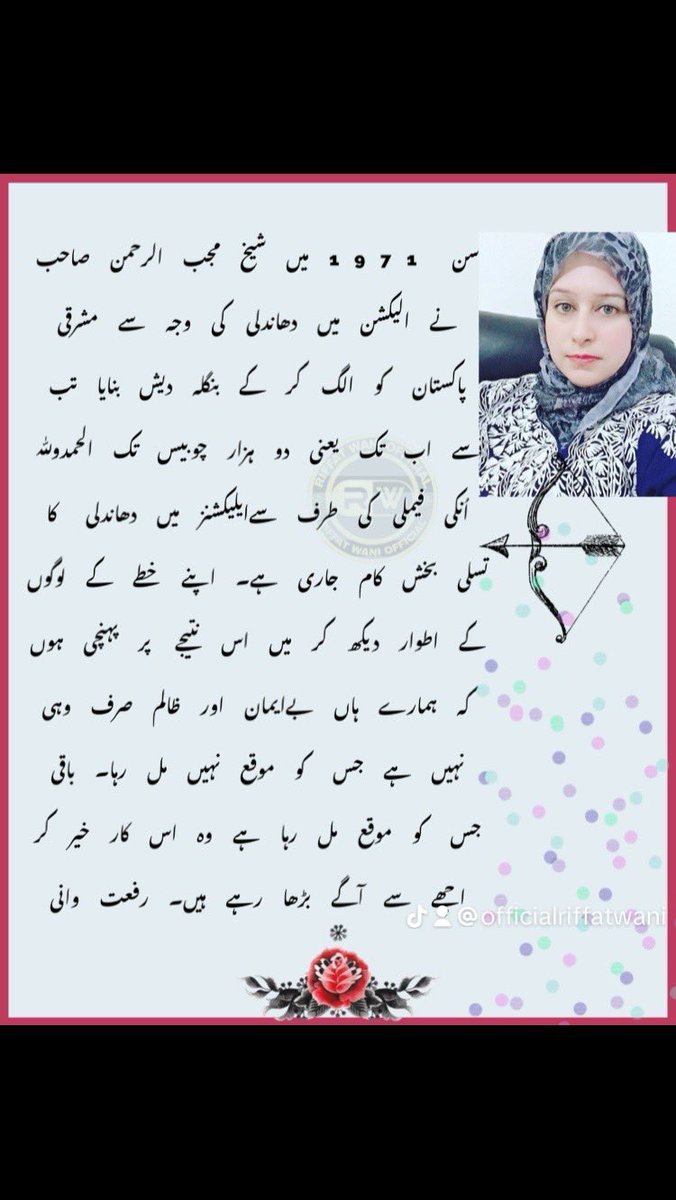 سن 1971 میں شیخ مجب الرحمن صاحب
نے الیکشن میں دھاندلی کی وجہ سے مشرقی
پاکستان کو الگ کر کے بنگلہ دیش بنایا تب
سے اب تک یعنی دو ہزار چوبیس تک الحمدوللہ
اُنکی فیملی کی طرف سےایلیکشنز میں دھاندلی کا
تسلی بخش کام جاری ہے۔ اپنے خطے کے لوگوں
کے اطوار دیکھ کر میں اس نتیجے پر پہنچی ہوں
کہ ہمارے ہاں بےایمان اور ظالم صرف وہی
نہیں ہے جس کو موقع نہیں مل رہا۔ باقی
جس کو موقع مل رہا ہے وہ اس کار خیر کر
اچھے سے آگے بڑھا رہے ہیں۔ رفعت وانی
@officialriffatwani
RIFFAT WANI OFFICIAL
RW
RIFFAT WANI OFFICIAL